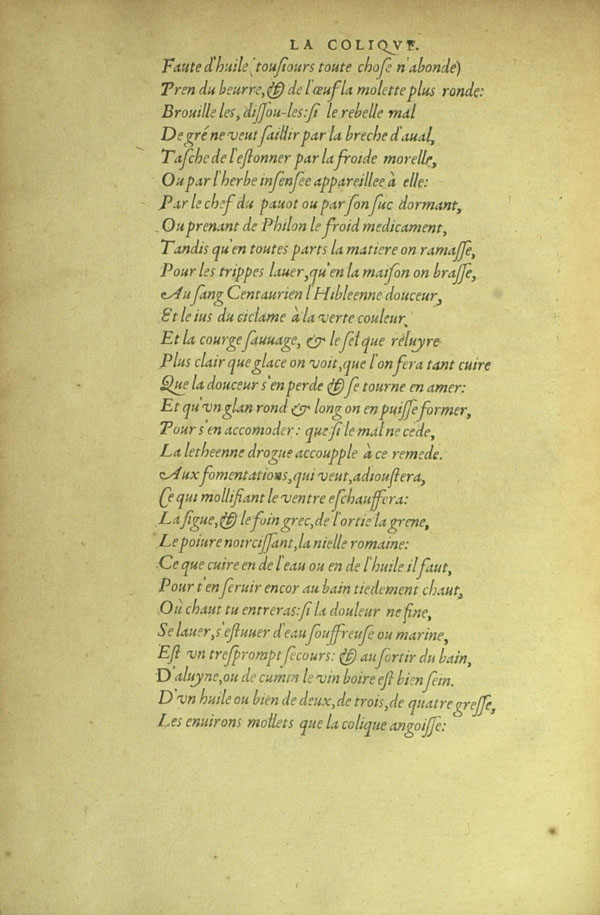 LA COLIQVE.
Faute d'huile (tousiours toute chose n'abonde)
Pren du beurre, & de l'œuf la molette plus ronde:
Brouille les, dissou-les: si le rebelle mal
De gré ne veut saillir par la breche d'aual,
Tasche de l'estonner par la froide morelle,
Ou par l'herbe insensee appareillee à elle:
Par le chef du pauot ou par son suc dormant,
Ou prenant de Philon le froid medicament,
Tandis qu'en toutes parts la matiere on ramasse,
Pour les trippes lauer, qu'en la maison on brasse,
Au sang Centaurien l'Hibleenne douceur,
Et le ius du ciclame à la verte couleur,
Et la courge sauuage, & le sel que reluyre
Plus clair que glace on voit, que l'on fera tant cuire
Que la douceur s'en perde & se tourne en amer:
Et qu'vn glan rond & long on en puisse former,
Pour s'en accomoder: que si le mal ne cede,
La letheenne drogue accoupple à ce remede.
Aux fomentations, qui veut, adioustera,
Ce qui mollifiant le ventre eschauffera:
La figue, & le foin grec, de l'ortie la grene,
Le poiure noircissant, la nielle romaine:
Ce que cuire en de l'eau ou en de l'huile il faut,
Pour t'en seruir encor au bain tiedement chaut,
Où chaut tu entreras: si la douleur ne fine,
Se lauer, s'estuuer d'eau souffreuse ou marine,
Est vn tresprompt secours: & au sortir du bain,
D'aluyne, ou de cumin le vin boire est bien sein.
D'vn huile ou bien de deux, de trois, de quatre gresse,
Les enuirons mollets que la colique angoisse: